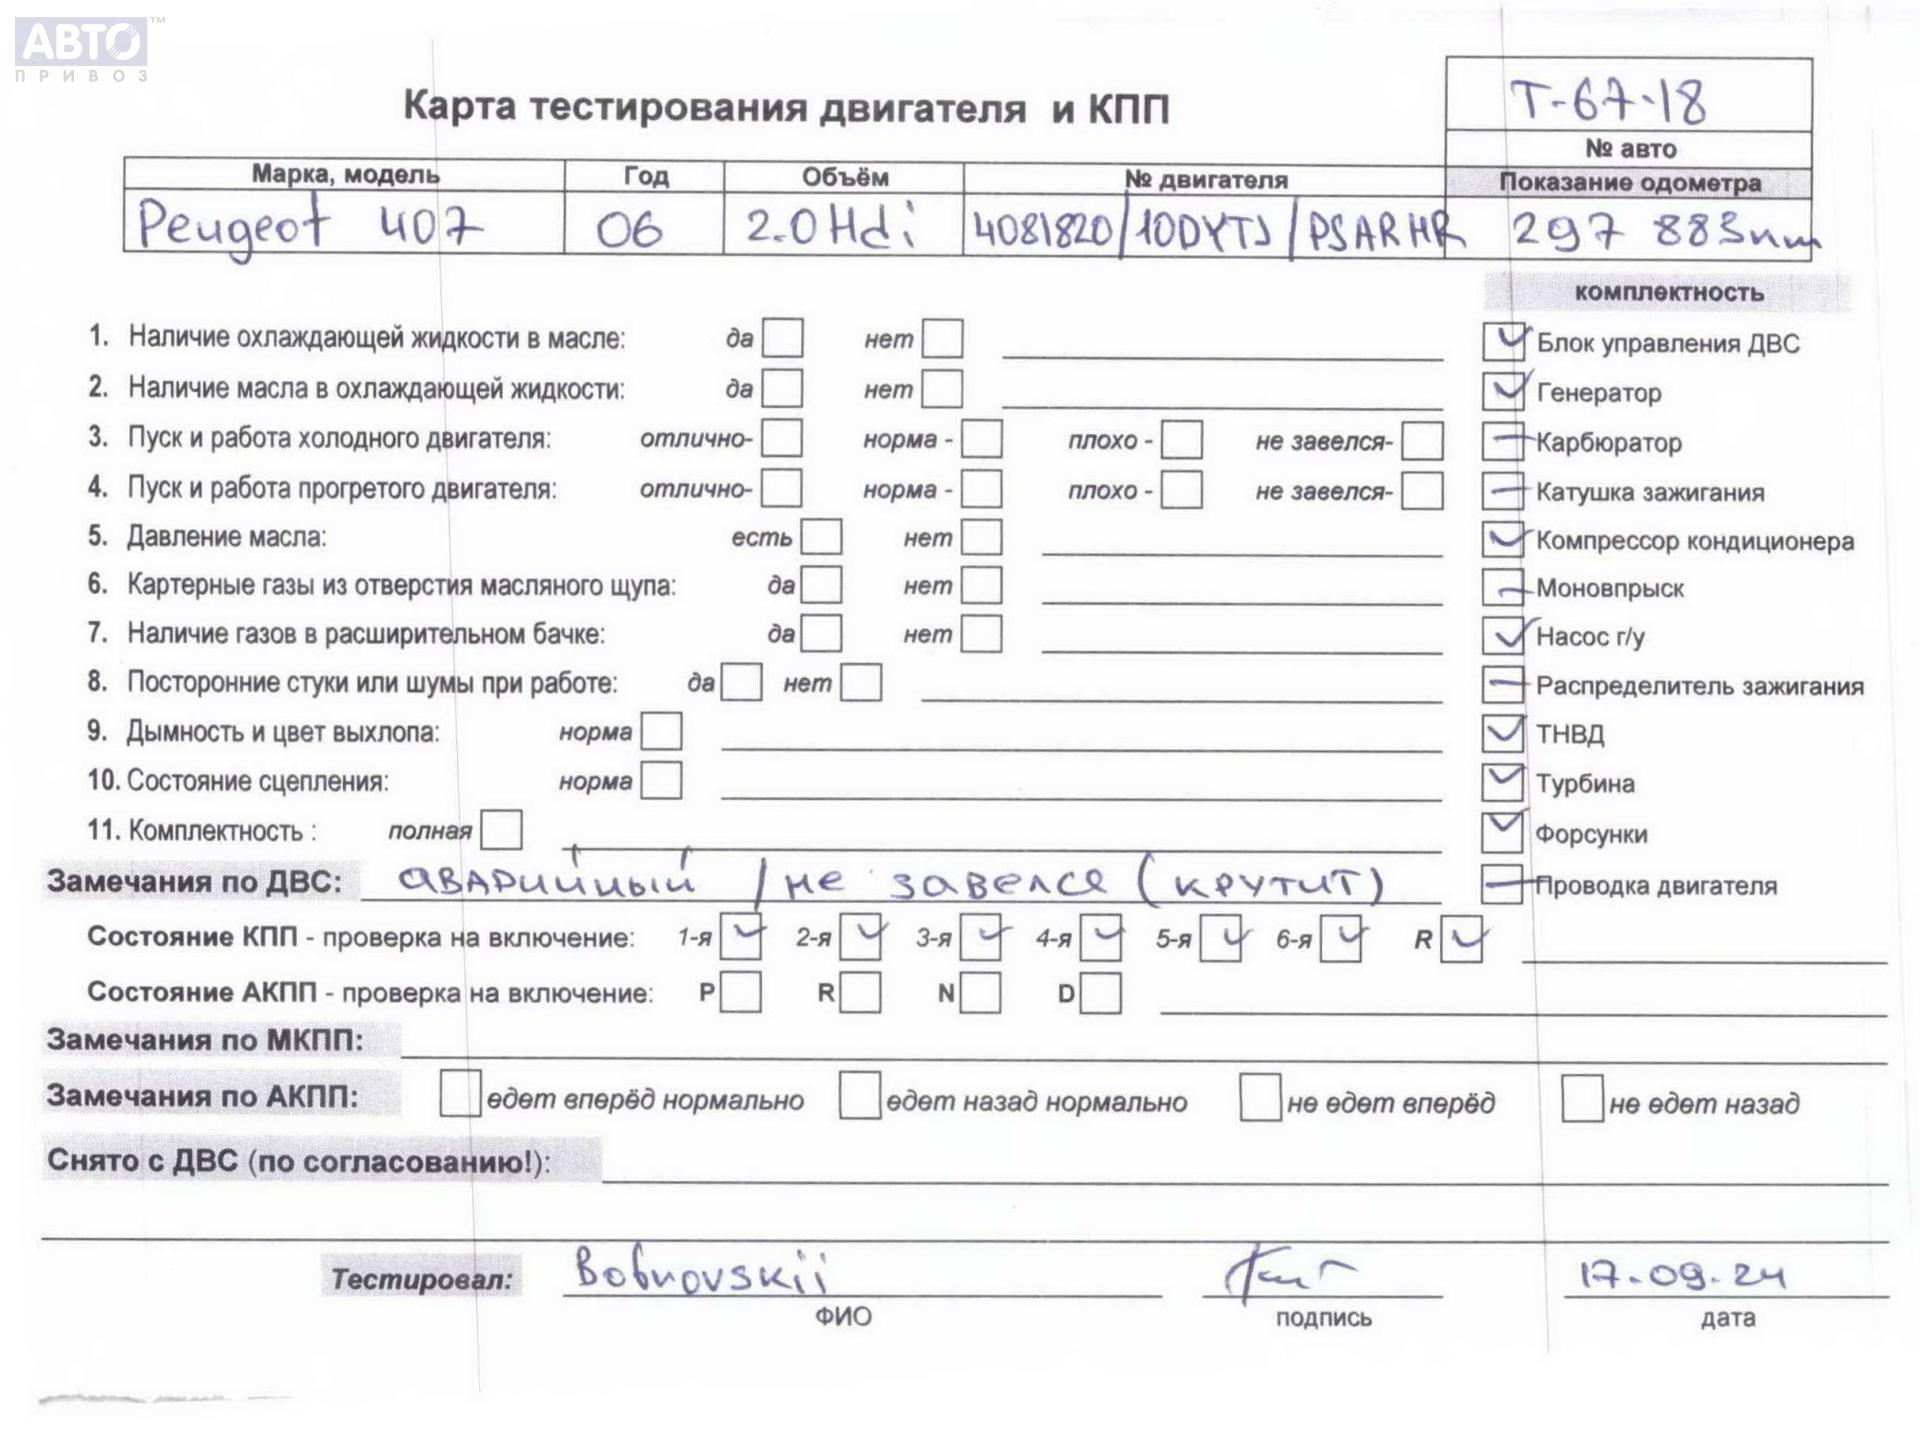 АВТО™
ПРИВОЗ
Карта тестирования двигателя и КПП
Т-67-18
№ авто
Марка, модель Год Объём № двигателя Показание одометра
Peugeot 407 06 2.0 Hdi 4081820/10DYTJ/PSARHR 297 883
комплектность
1. Наличие охлаждающей жидкости в масле: да нет Блок управления ДВС
2. Наличие масла в охлаждающей жидкости: да нет Генератор
3. Пуск и работа холодного двигателя: отлично- норма - плохо - не завелся- Карбюратор
4. Пуск и работа прогретого двигателя: отлично- норма - плохо - не завелся- Катушка зажигания
5. Давление масла: есть нет Компрессор кондиционера
6. Картерные газы из отверстия масляного щупа: да нет Моновпрыск
7. Наличие газов в расширительном бачке: да нет Насос г/у
8. Посторонние стуки или шумы при работе: да нет Распределитель зажигания
9. Дымность и цвет выхлопа: норма ТНВД
10. Состояние сцепления: норма Турбина
11. Комплектность : полная Форсунки
Замечания по ДВС: аварийный / не завелся (крутит) Проводка двигателя
Состояние КПП - проверка на включение: 1-я 2-я 3-я 4-я 5-я 6-я R
Состояние АКПП - проверка на включение: P R N D
Замечания по МКПП:
Замечания по АКПП: едет вперёд нормально едет назад нормально не едет вперёд не едет назад
Снято с ДВС (по согласованию!):
Тестировал: Bobnovskii 17.09.24
ФИО подпись дата